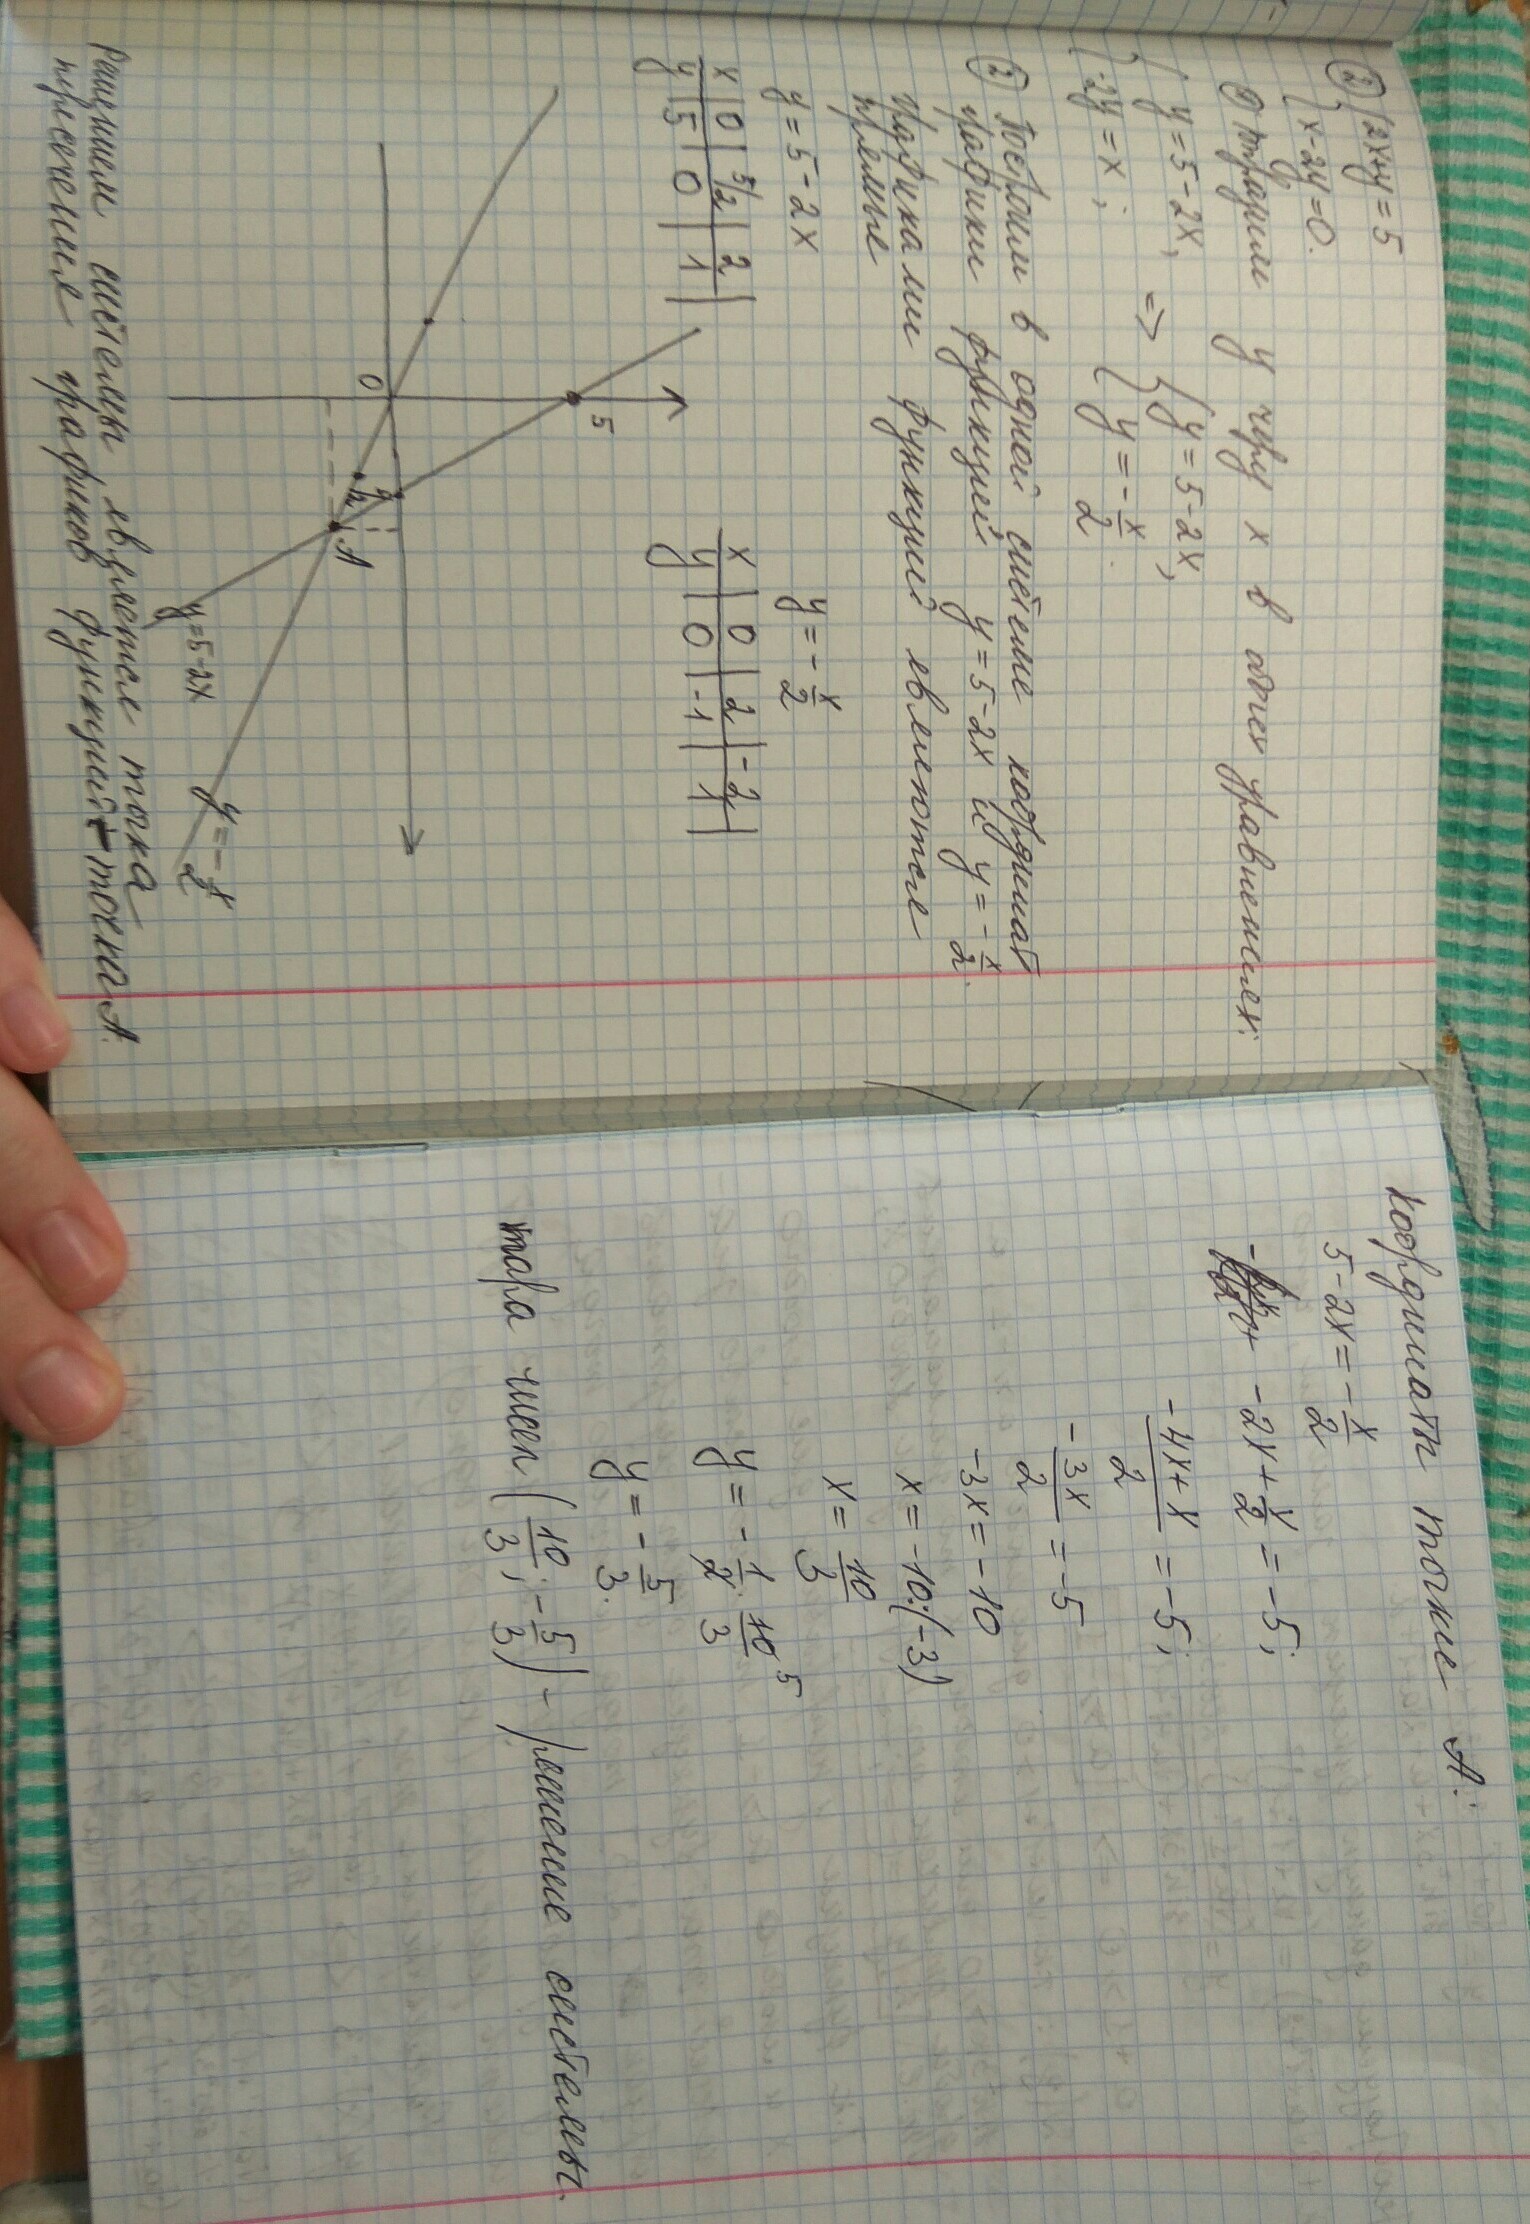 ② { 2x+y=5
{ x-2y=0.
① Выразим y через x в обоих уравнениях:
{ y=5-2x, => { y=5-2x,
{ -2y=x; { y=-x/2.
② Построим в одной системе координат
графики функций y=5-2x и y=-x/2.
графиками функций являются
прямые
y=5-2x y=-x/2
x | 0 | 5/2 | 2 | x | 0 | 2 | -2 |
y | 5 | 0 | 1 | y | 0 | -1 | 1 |
5
0
2
A
y=5-2x
y=-x/2
Решением системы является точка
пересечения графиков функций - точка A.
Координаты точки A:
5-2x=-x/2
-2x+x/2=-5;
(-4x+x)/2=-5;
-3x/2=-5
-3x=-10
x=-10:(-3)
x=10/3
y=-1/2·10/3 5
y=-5/3.
пара чисел (10/3; -5/3) - решение системы.